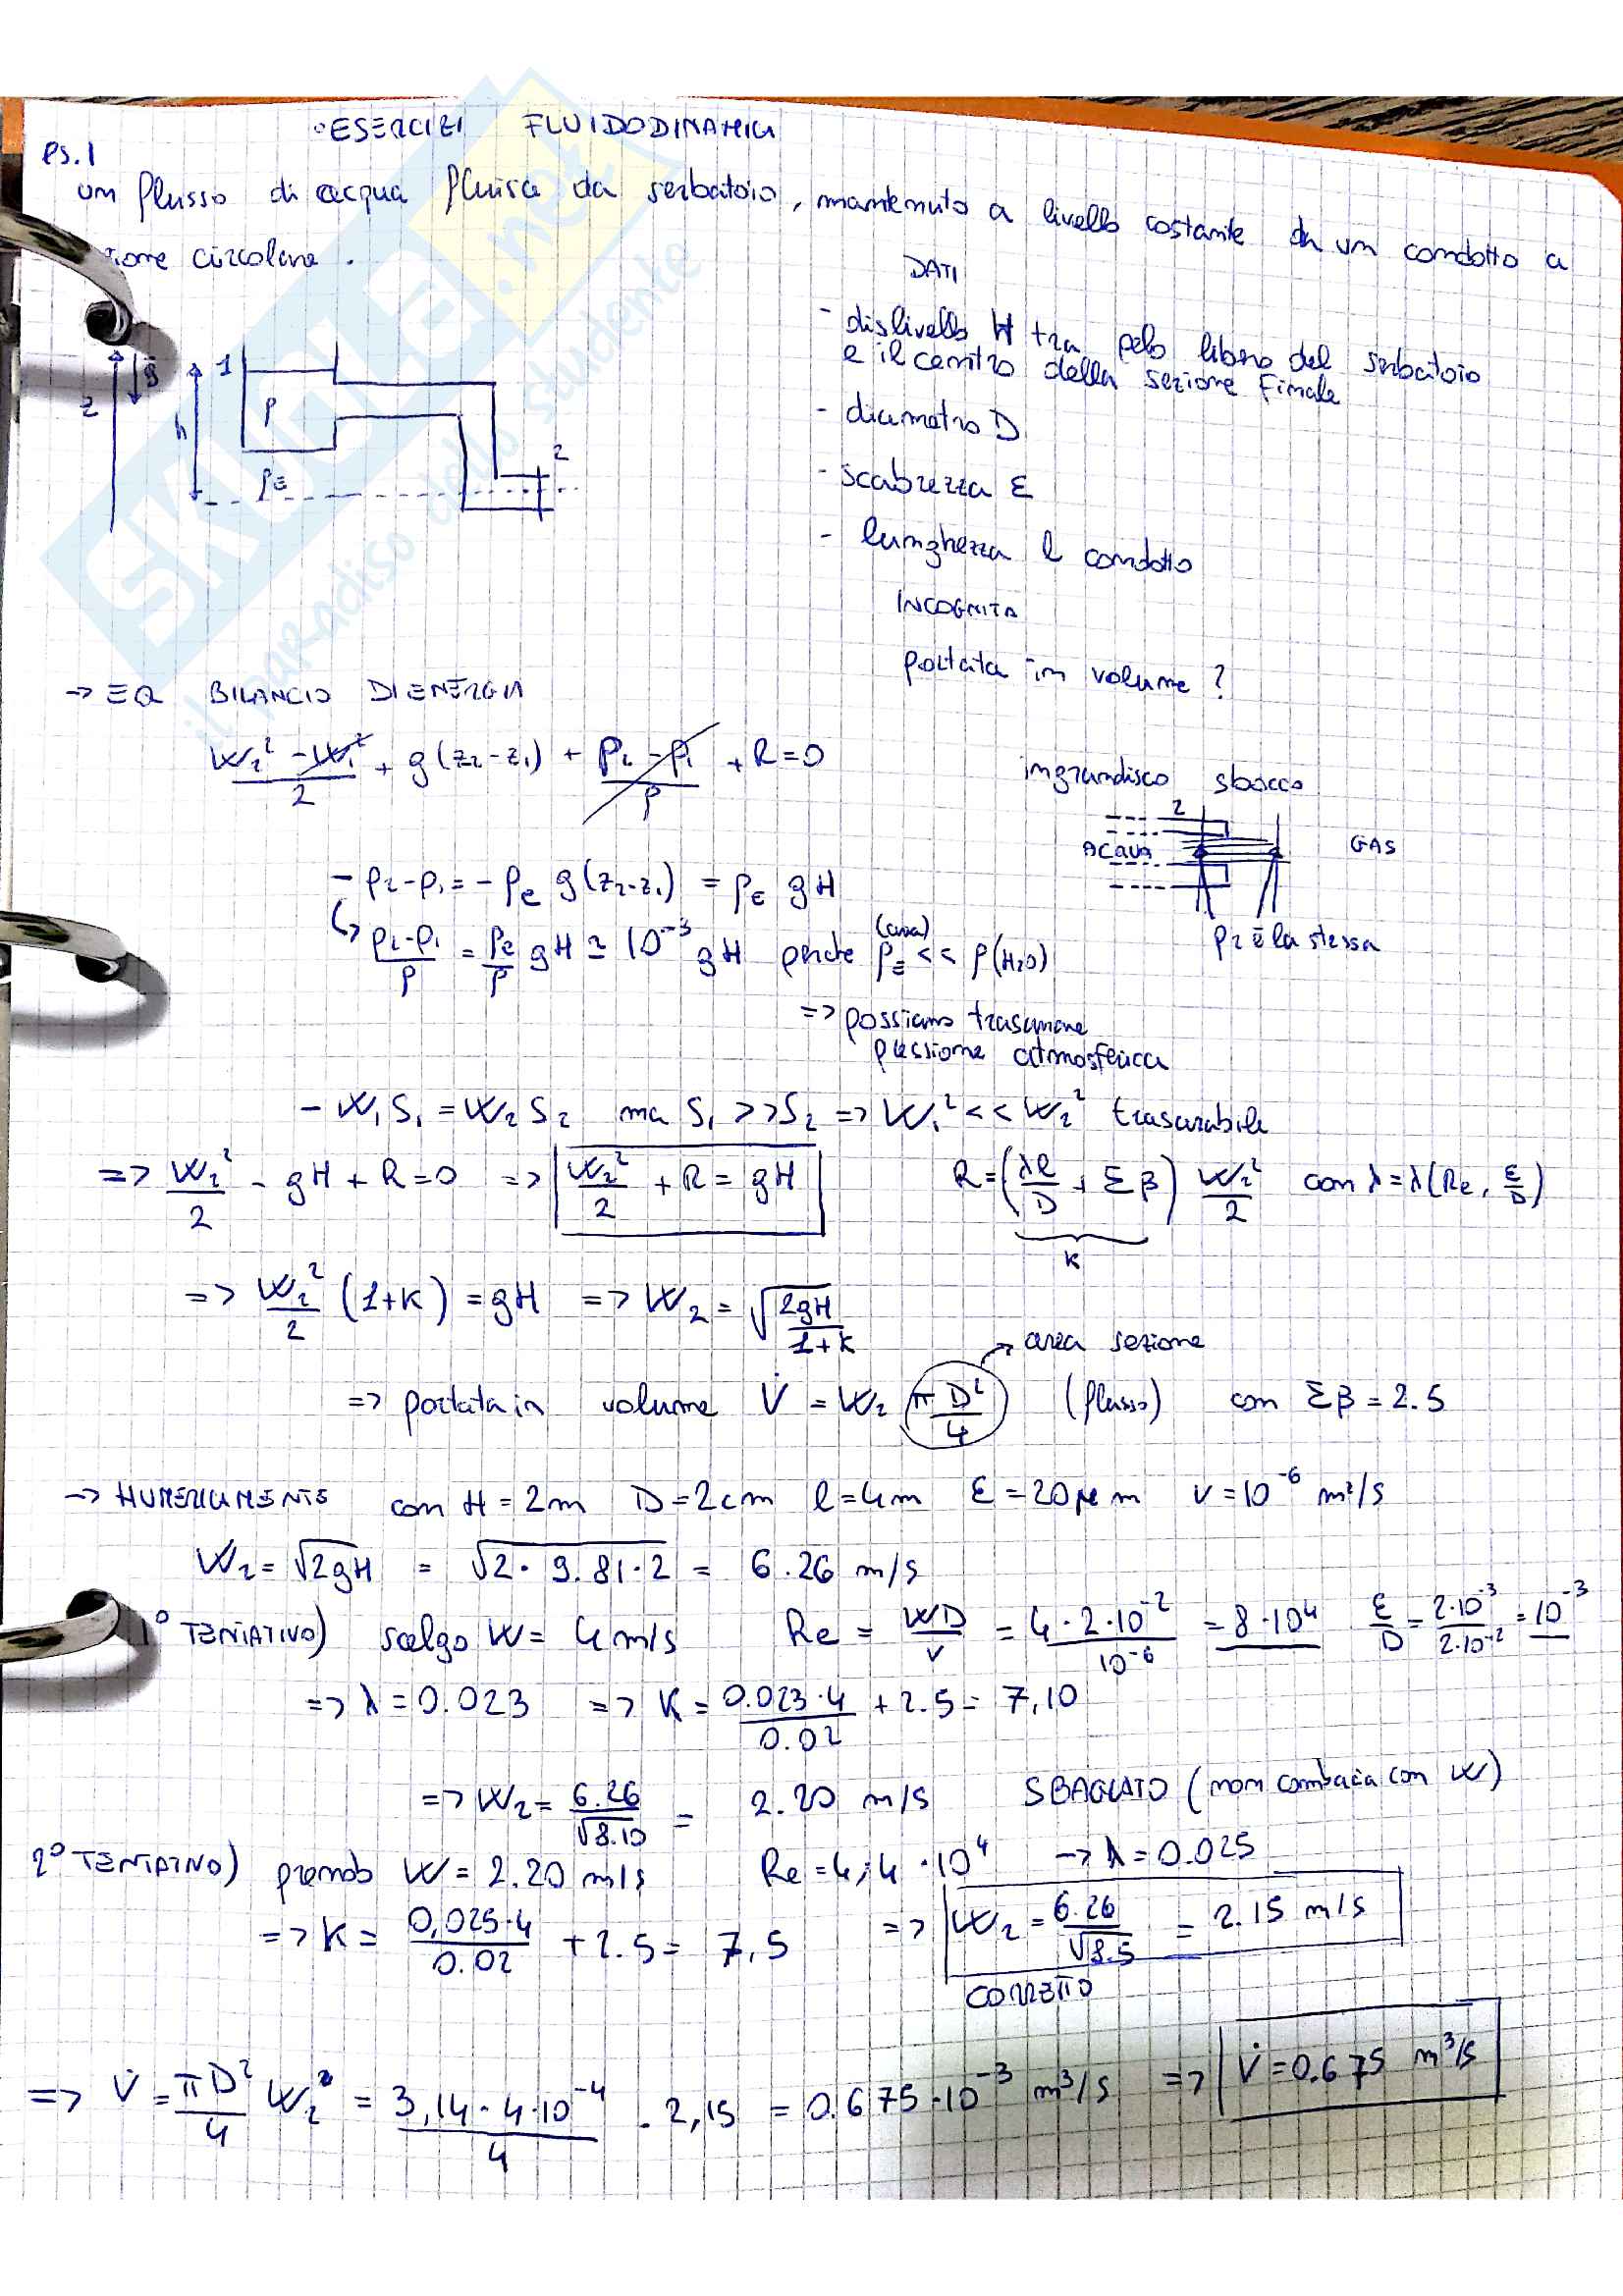 ESERCIZI FLUIDODINAMICA
es.1
un flusso di acqua fluisce da serbatoio, mantenuto a livello costante da un condotto a
zione circolare.
DATI
- dislivello H tra pelo libero del serbatoio
e il centro della sezione finale
- diametro D
- scabrezza ε
- lunghezza l condotto
INCOGNITA
portata in volume ?
z g h 1 ρ ρE 2
→ EQ BILANCIO DI ENERGIA
(W₂² - W₁²)/2 + g(z₂-z₁) + (P₂-P₁)/ρ + R = 0
ingrandisco sbocco
2
ACQUA GAS
P₂ è la stessa
- P₂-P₁ = -ρe g(z₂-z₁) = ρE gH
↳ (P₂-P₁)/ρ = ρe/ρ gH ≃ 10⁻³ gH perché ρE (aria) << ρ(H₂O)
=> possiamo trascurare
pressione atmosferica
- W₁S₁ = W₂S₂ ma S₁ >> S₂ => W₁² << W₂² trascurabile
=> W₂²/2 - gH + R = 0 => W₂²/2 + R = gH R = (λl/D + Σβ) W₂²/2 con λ = λ(Re, ε/D)
K
=> W₂²/2 (1+K) = gH => W₂ = √(2gH/(1+K))
→ area sezione
=> portata in volume V̇ = W₂ πD²/4 (flusso) con Σβ = 2.5
→ NUMERICAMENTE con H = 2m D = 2cm l = 4m ε = 20μm ν = 10⁻⁶ m²/s
W₂ = √2gH = √2·9.81·2 = 6.26 m/s
1° TENTATIVO) scelgo W = 4 m/s Re = WD/ν = 4·2·10⁻²/10⁻⁶ = 8·10⁴ ε/D = 2·10⁻³/2·10⁻² = 10⁻³
=> λ = 0.023 => K = 0.023·4/0.02 + 2.5 = 7,10
=> W₂ = 6.26/√8.10 = 2.20 m/s SBAGLIATO (non combacia con W)
2° TENTATIVO) prendo W = 2.20 m/s Re = 4,4·10⁴ → λ = 0.025
=> K = 0,025·4/0.02 + 2.5 = 7,5 => W₂ = 6.26/√8.5 = 2.15 m/s
CORRETTO
=> V̇ = πD²/4 W₂ = 3,14·4·10⁻⁴/4 · 2,15 = 0.675·10⁻³ m³/s => V̇ = 0.675 m³/s
SKUOLA.net
il paradiso dello studente